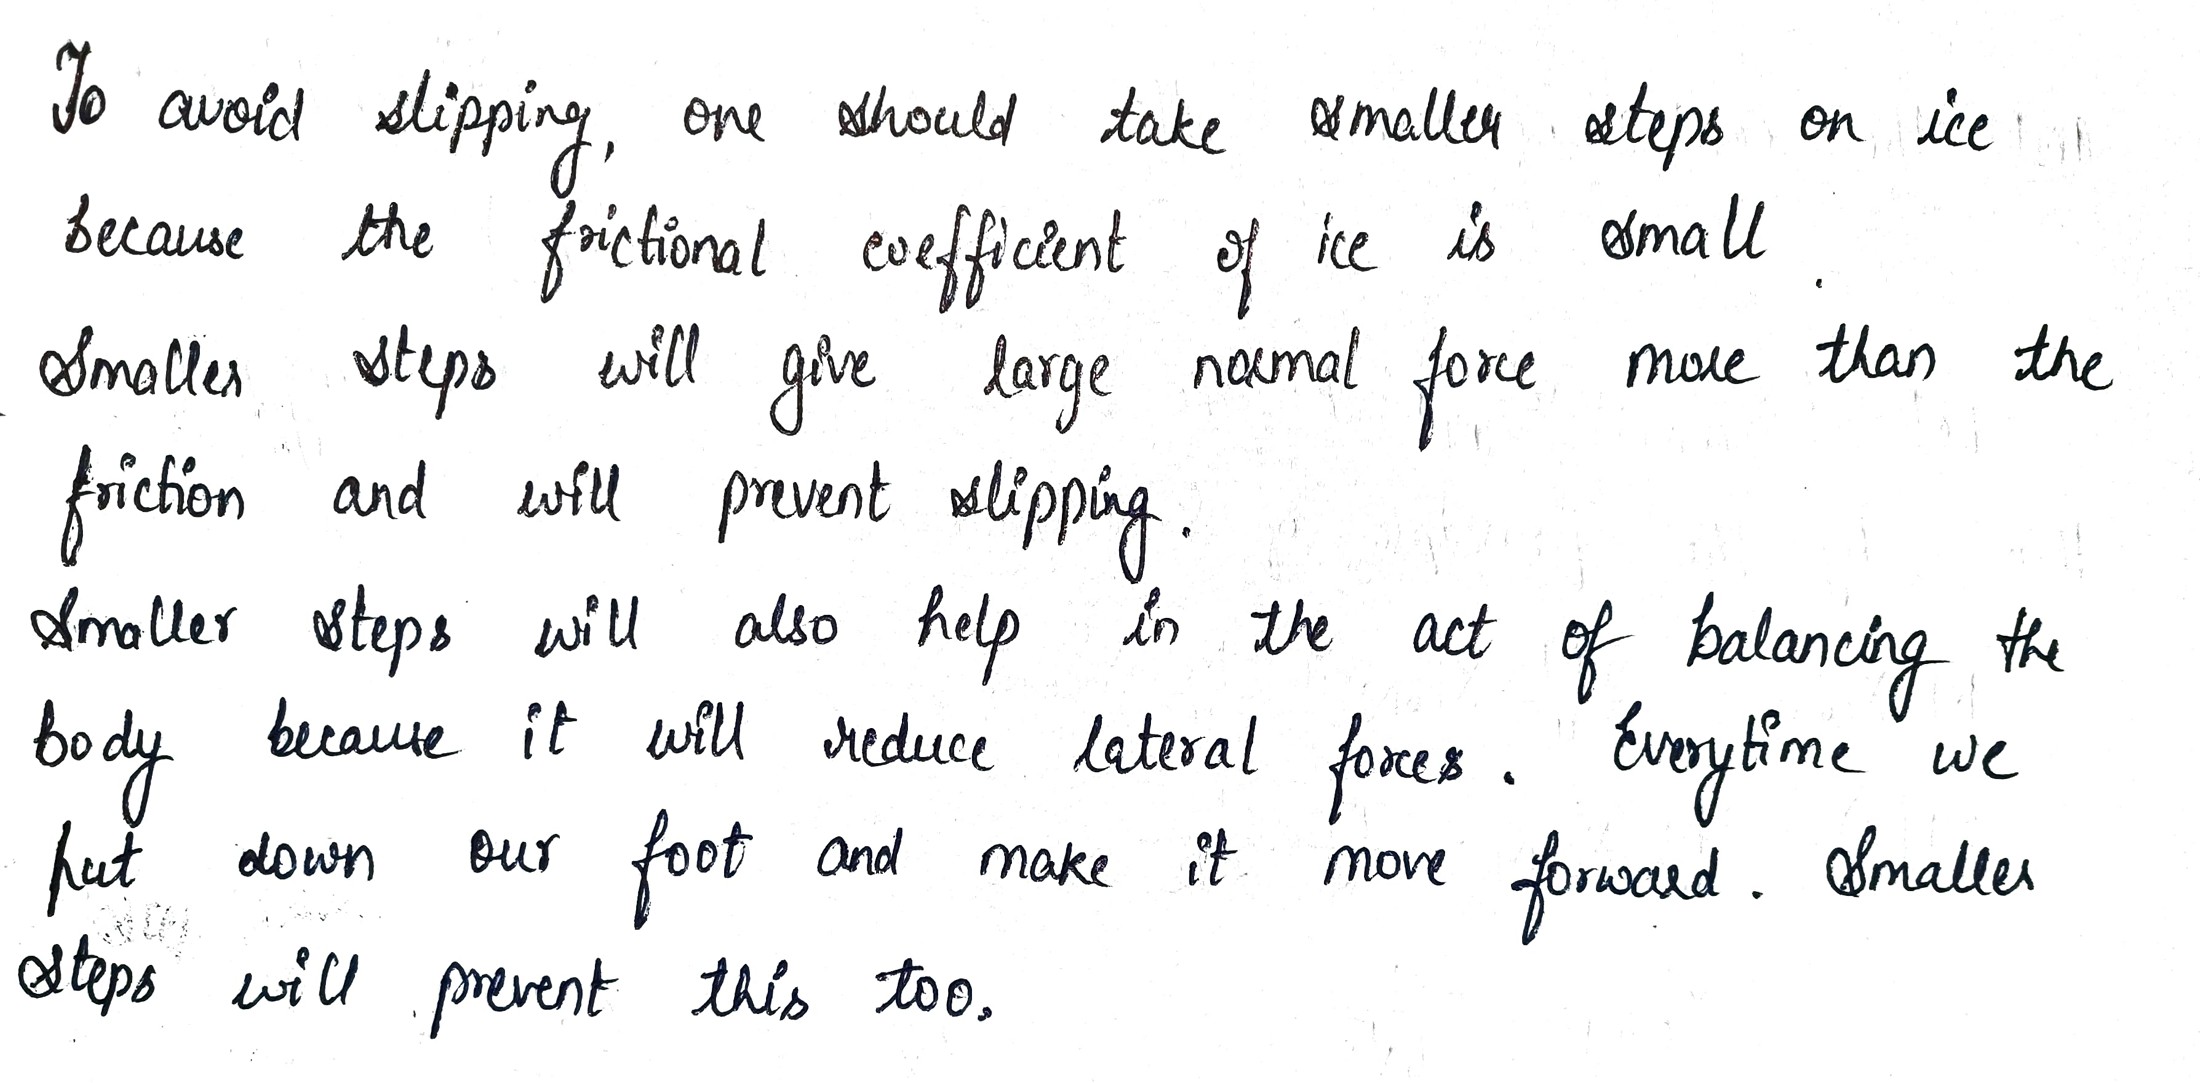 To avoid slipping, one should take smaller steps on ice
because the frictional coefficient of ice is small.
Smaller steps will give large normal force more than the
friction and will prevent slipping.
Smaller steps will also help in the act of balancing the
body because it will reduce lateral forces. Everytime we
put down our foot and make it move forward. Smaller
steps will prevent this too.